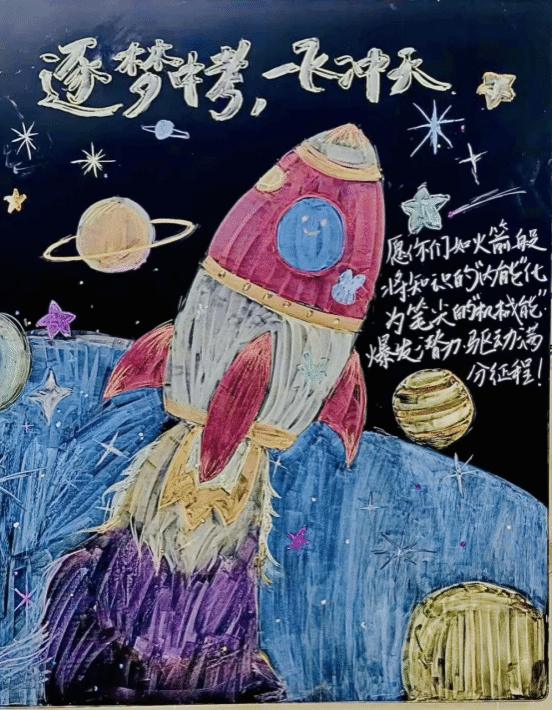 逐梦中考，一飞冲天
愿你们如火箭般
将知识的“内能”化
为笔尖的“机械能”
爆发潜力驱动满
分征程！